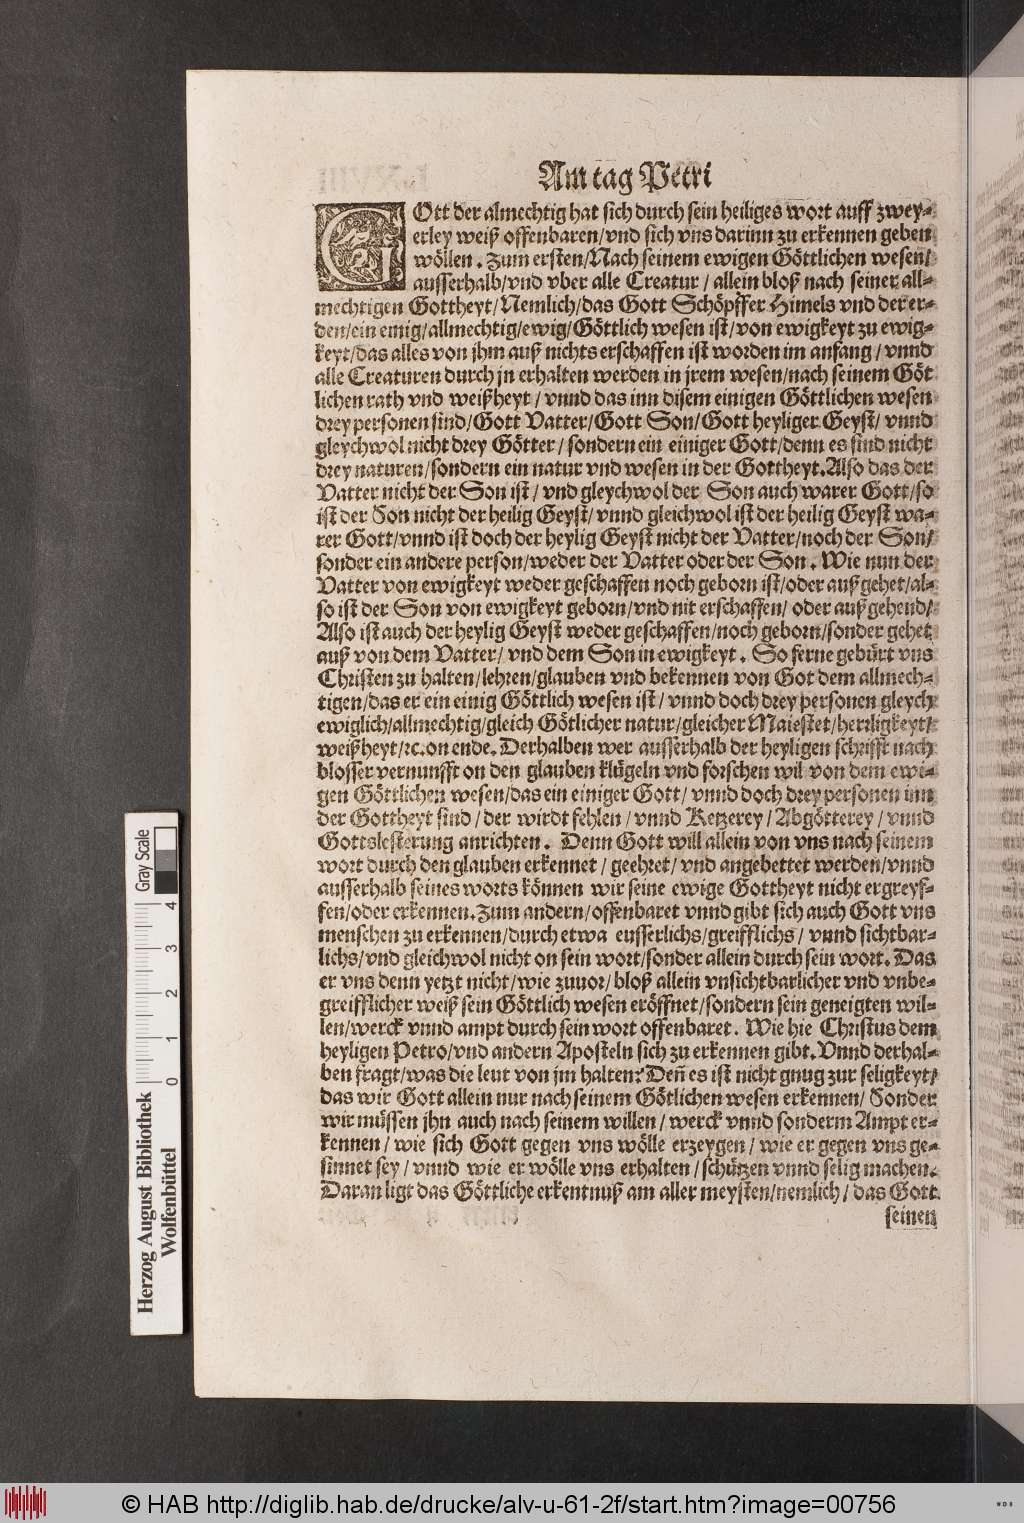 Am tag Petri
GOtt der almechtig hat sich durch sein heiliges wort auff zwey-
erley weiß offenbaren/vnd sich vns darinn zu erkennen geben
wöllen. Zum ersten/Nach seinem ewigen Göttlichen wesen/
ausserhalb/vnd vber alle Creatur/ allein bloß nach seiner all-
mechtigen Gottheyt/Nemlich/das Gott Schöpffer Himels vnd der er-
den/ein einig/allmechtig/ewig/Göttlich wesen ist/von ewigkeyt zu ewig-
keyt/das alles von jhm auß nichts erschaffen ist worden im anfang/ vnnd
alle Creaturen durch jn erhalten werden in jrem wesen/nach seinem Göt
lichen rath vnd weißheyt/ vnnd das inn disem einigen Göttlichen wesen
drey personen sind/Gott Vatter/Gott Son/Gott heyliger Geyst/ vnnd
gleychwol nicht drey Götter/ sondern ein einiger Gott/denn es sind nicht
drey naturen/sondern ein natur vnd wesen in der Gottheyt. Also das der
Vatter nicht der Son ist/ vnd gleychwol der Son auch warer Gott/so
ist der Son nicht der heilig Geyst/ vnnd gleichwol ist der heilig Geyst wa-
rer Gott/vnnd ist doch der heylig Geyst nicht der Vatter/noch der Son/
sonder ein andere person/weder der Vatter oder der Son. Wie nun der
Vatter von ewigkeyt weder geschaffen noch geborn ist/oder außgehet/al-
so ist der Son von ewigkeyt geborn/vnd nit erschaffen/ oder außgehend/
Also ist auch der heylig Geyst weder geschaffen/noch geborn/sonder gehet
auß von dem Vatter/ vnd dem Son in ewigkeyt. So ferne gebürt vns
Christen zu halten/lehren/glauben vnd bekennen von Got dem allmech-
tigen/das er ein einig Göttlich wesen ist/ vnnd doch drey personen gleych
ewiglich/allmechtig/gleich Götlicher natur/gleicher Maiestet/herrligkeyt/
weißheyt/ꝛc. on ende. Derhalben wer ausserhalb der heyligen schrifft nach
blosser vernunfft on den glauben klügeln vnd forschen wil von dem ewi-
gen Göttlichen wesen/das ein einiger Gott/ vnnd doch drey personen inn
der Gottheyt sind/ der wirdt fehlen/ vnnd Ketzerey/ Abgötterey/ vnnd
Gottslesterung anrichten. Denn Gott will allein von vns nach seinem
wort durch den glauben erkennet/ geehret/ vnd angebettet werden/vnnd
ausserhalb seines worts können wir seine ewige Gottheyt nicht ergreyf-
fen/oder erkennen. Zum andern/offenbaret vnnd gibt sich auch Gott vns
menschen zu erkennen/durch etwa eusserlichs/greifflichs/ vnnd sichtbar-
lichs/vnd gleichwol nicht on sein wort/sonder allein durch sein wort. Das
er vns denn yetzt nicht/wie zuuor/ bloß allein vnsichtbarlicher vnd vnbe-
greifflicher weiß sein Göttlich wesen eröffnet/sondern sein geneigten wil-
len/werck vnnd ampt durch sein wort offenbaret. Wie hie Christus dem
heyligen Petro/vnd andern Aposteln sich zu erkennen gibt. Vnnd derhal-
ben fragt/was die leut von jm halten? Deñ es ist nicht gnug zur seligkeyt/
das wir Gott allein nur nach seinem Götlichen wesen erkennen/ Sonder
wir müssen jhn auch nach seinem willen/ werck vnnd sonderm Ampt er-
kennen/ wie sich Gott gegen vns wölle erzeygen/ wie er gegen vns ge-
sinnet sey/ vnnd wie er wölle vns erhalten/ schützen vnnd selig machen.
Daran ligt das Göttliche erkentnuß am aller meysten/nemlich/ das Gott
seinen
Gray Scale
0 1 2 3 4
Herzog August Bibliothek
Wolfenbüttel
© HAB http://diglib.hab.de/drucke/alv-u-61-2f/start.htm?image=00756